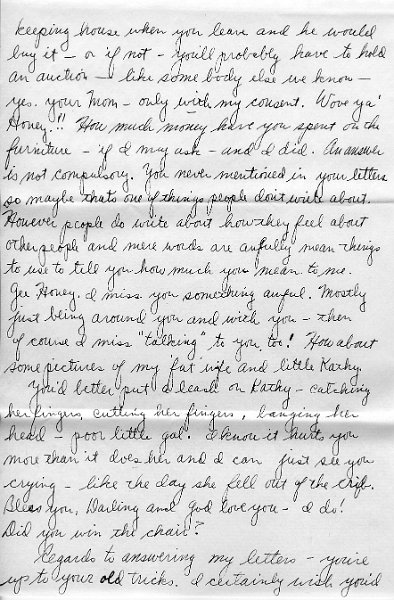 keeping house when you leave and he would
buy it - or if not - you'll probably have to hold
an auction - like some body else we know -
yes. your Mom - only with my consent. Wove ya'
Honey!!! How much money have you spent on the
furniture - if I may ask - and I did. An answer
is not compulsory. You never mentioned in your letters
so maybe thats one of things people don't write about.
However people do write about how they feel about
other people and mere words are awfully mean things
to use to tell you how much you mean to me.
Gee Honey. I miss you something awful. Mostly
just being around you and with you - then
of course I miss "talking" to you, too! How about
some pictures of my fat wife and little Kathy.
You'd better put a leash on Kathy - catching
her fingers, cutting her fingers, banging her
head - poor little gal. I know it hurts you
more than it does her and I can just see you
crying - like the day she fell out of the crib.
Bless you, Darling and God love you - I do!
Did you win the chair?
Regards to answering my letters - you're
up to your old tricks. I certainly wish you'd